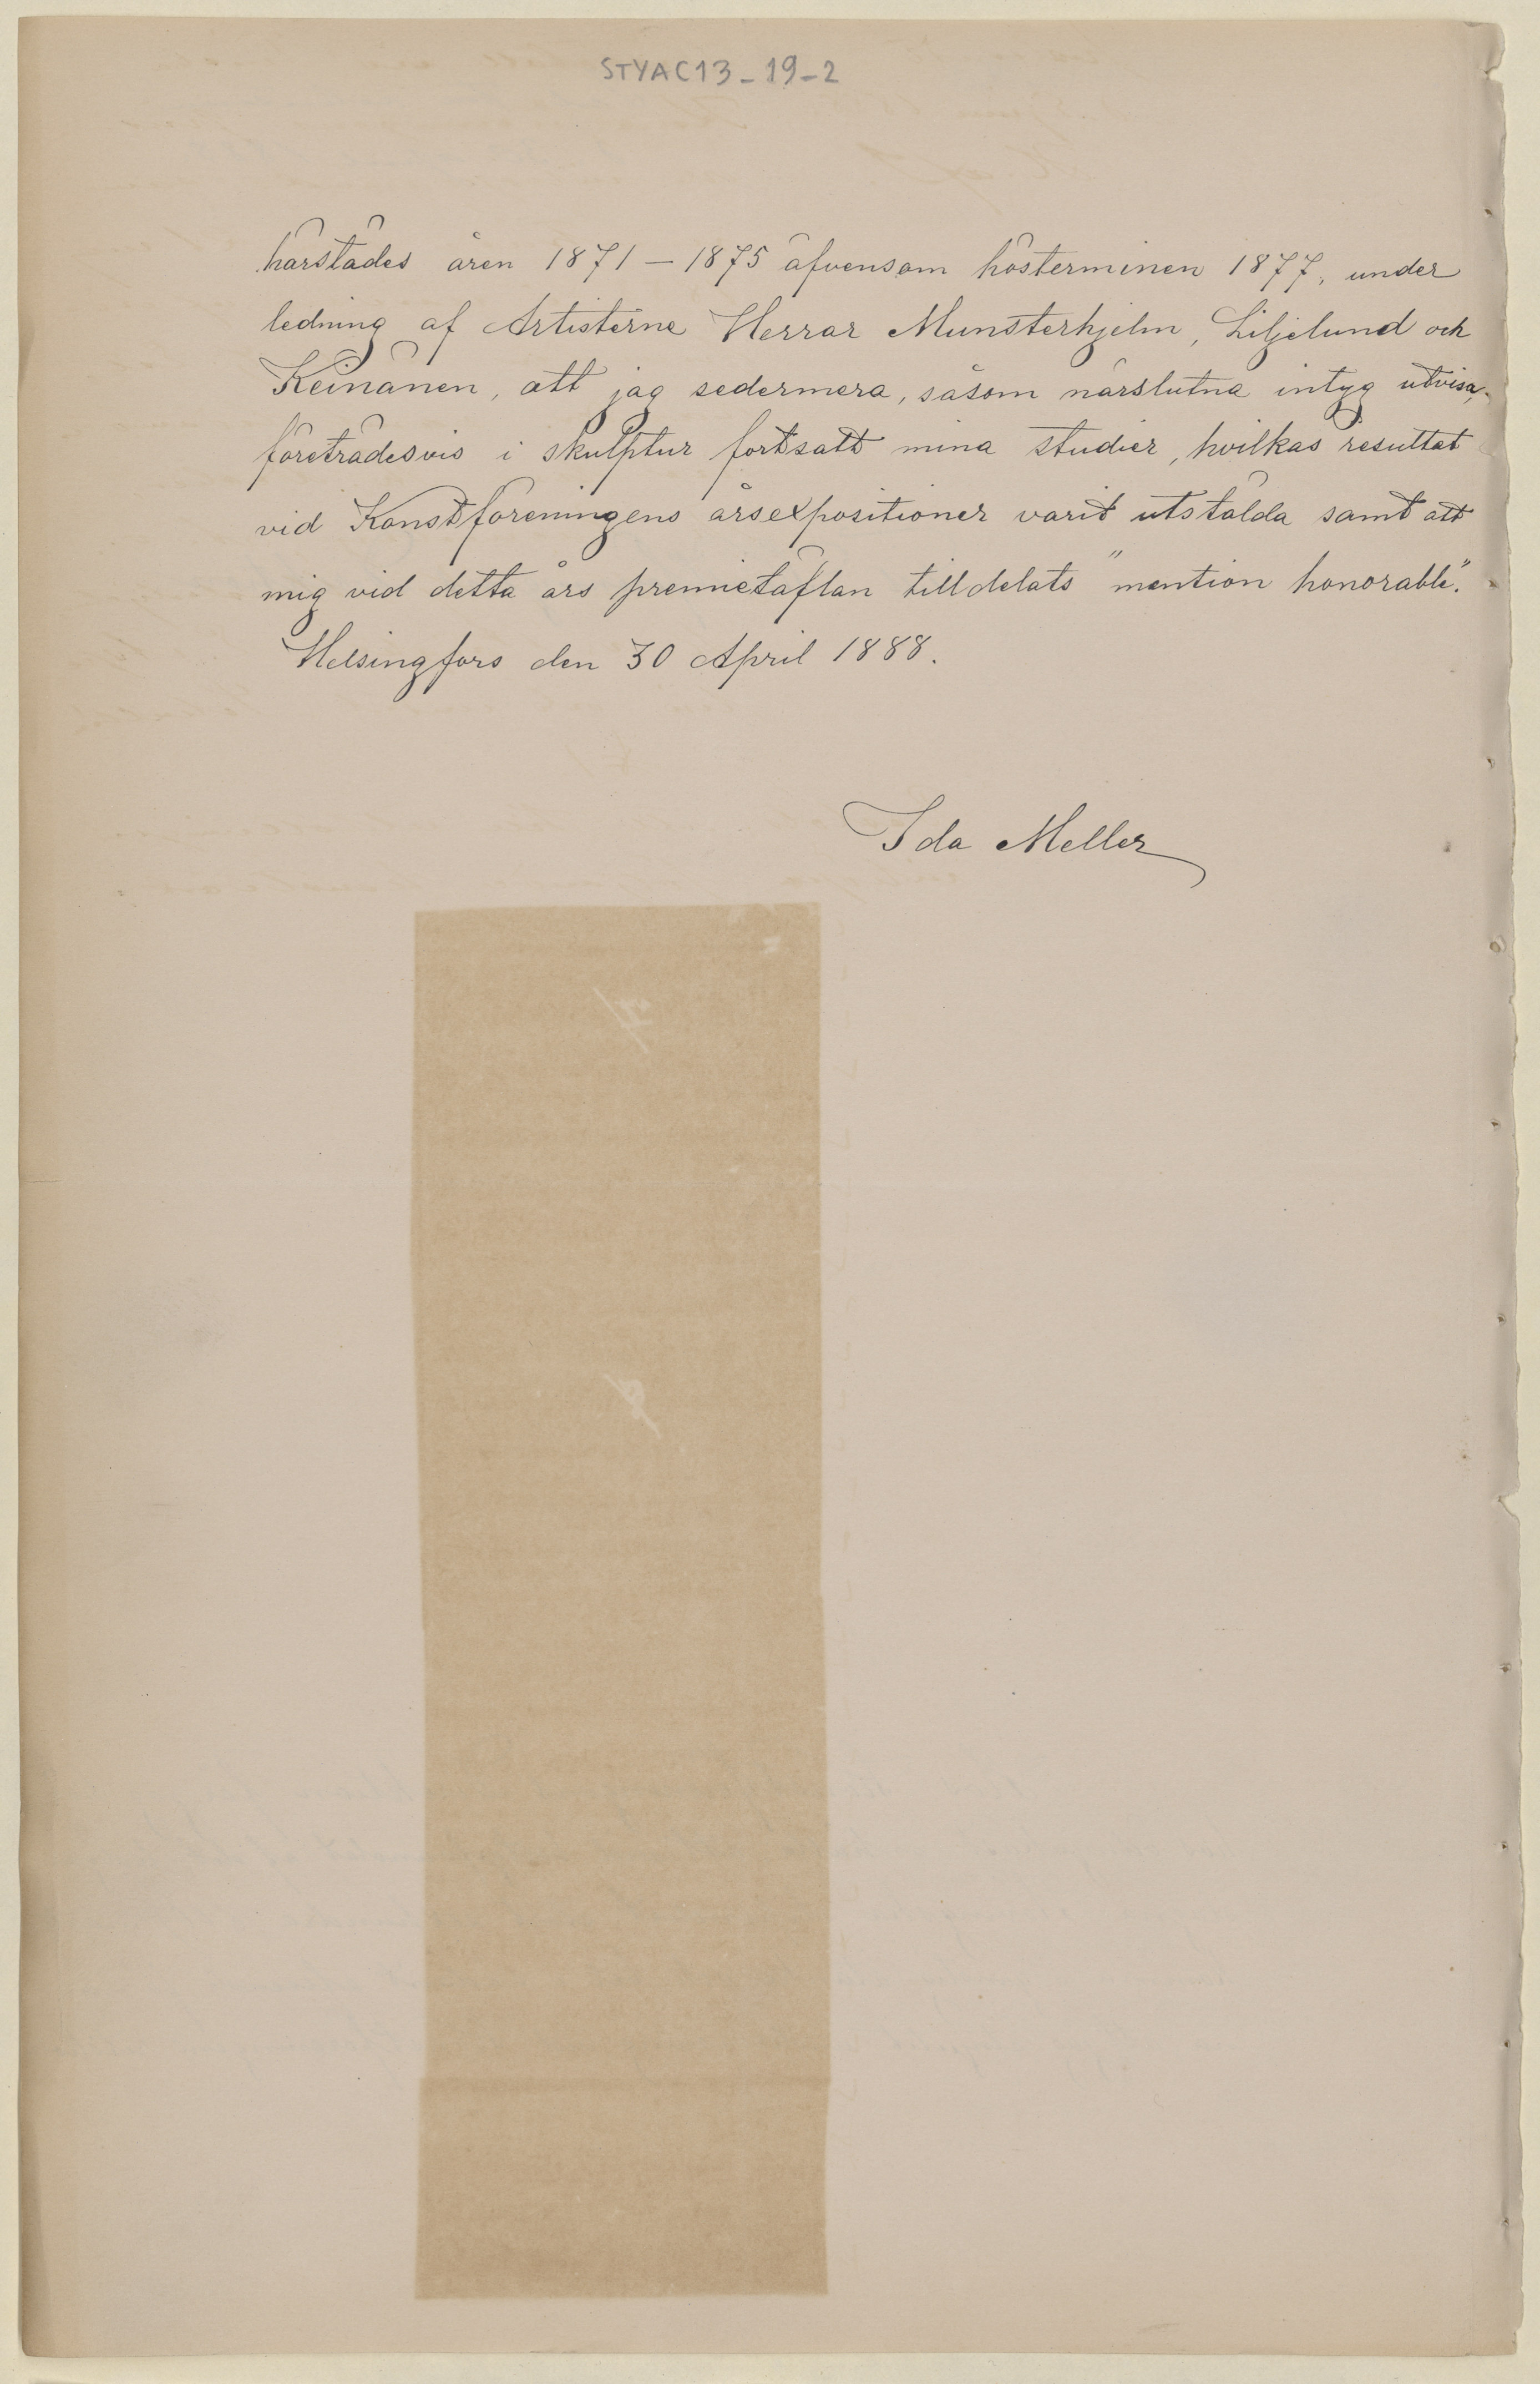 STYAC13_19_2
härstädes åren 1871 – 1875 äfvensom höstterminen 1877, under
ledning af Artisterne Herrar Munsterhjelm, Liljelund och
Keinänen, att jag sedermera, såsom närslutna intyg utvisa,
företrädesvis i skulptur fortsatt mina studier, hvilkas resultat
vid Konstföreningens årsexpositioner varit utstälda samt att
mig vid detta års premietäflan tilldelats "mention honorable".
Helsingfors den 30 April 1888.
Ida Meller